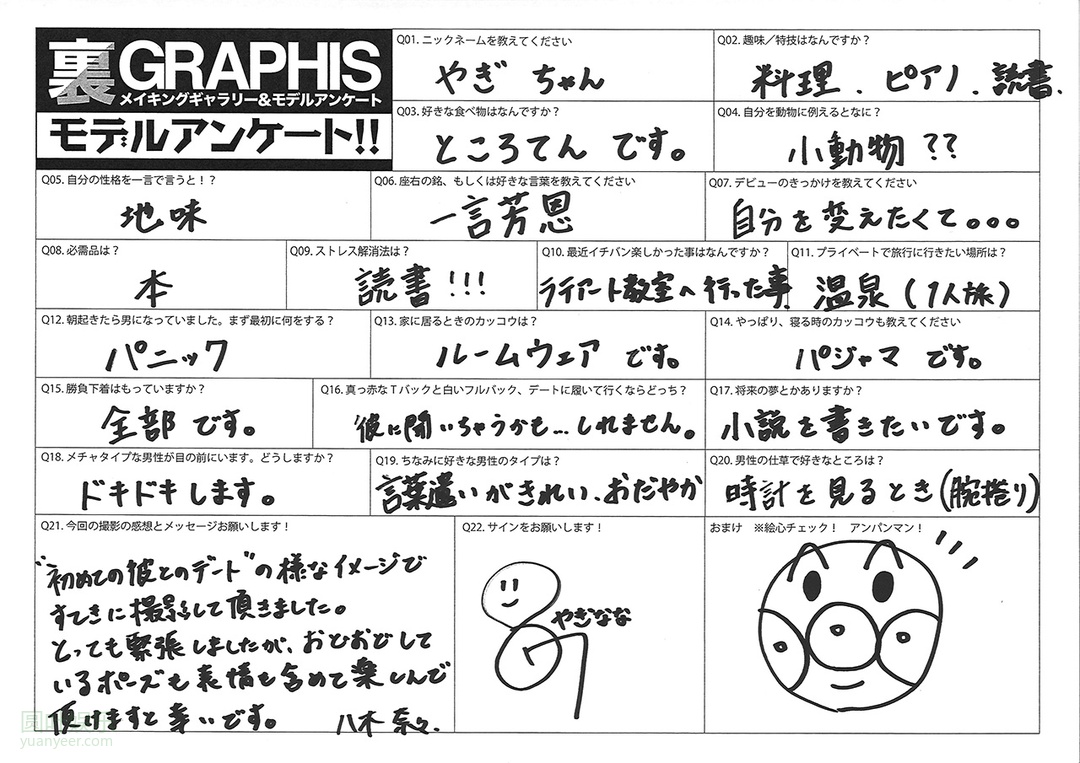 裏GRAPHIS
メイキングギャラリー&モデルアンケート
モデルアンケート!!
Q01. ニックネームを教えてください
やぎ ちゃん
Q02. 趣味／特技はなんですか？
料理、ピアノ、読書、
Q03. 好きな食べ物はなんですか？
ところてん です。
Q04. 自分を動物に例えるとなに？
小動物 ??
Q05. 自分の性格を一言で言うと！？
地味
Q06. 座右の銘、もしくは好きな言葉を教えてください
一言芳恩
Q07. デビューのきっかけを教えてください
自分を変えたくて。。。
Q08. 必需品は？
本
Q09. ストレス解消法は？
読書 !!!
Q10. 最近イチバン楽しかった事はなんですか？
ラテアート教室へ行った事
Q11. プライベートで旅行に行きたい場所は？
温泉（1人旅）
Q12. 朝起きたら男になっていました。まず最初に何をする？
パニック
Q13. 家に居るときのカッコウは？
ルームウェア です。
Q14. やっぱり、寝る時のカッコウも教えてください
パジャマ です。
Q15. 勝負下着はもっていますか？
全部 です。
Q16. 真っ赤なTバックと白いフルバック、デートに履いて行くならどっち？
彼に聞いちゃうかも…しれません。
Q17. 将来の夢とかありますか？
小説を書きたいです。
Q18. メチャタイプな男性が目の前にいます。どうしますか？
ドキドキします。
Q19. ちなみに好きな男性のタイプは？
言葉遣いがきれい、おだやか
Q20. 男性の仕草で好きなところは？
時計を見るとき（腕捲り）
Q21. 今回の撮影の感想とメッセージお願いします！
"初めての彼とのデート"の様なイメージで
すてきに撮影して頂きました。
とっても緊張しましたが、おどおどして
いるポーズも表情も含めて楽しんで
頂けますと幸いです。 八木 奈々.
Q22. サインをお願いします！
やぎなな
おまけ ※絵心チェック！ アンパンマン！
yuanyeer.com